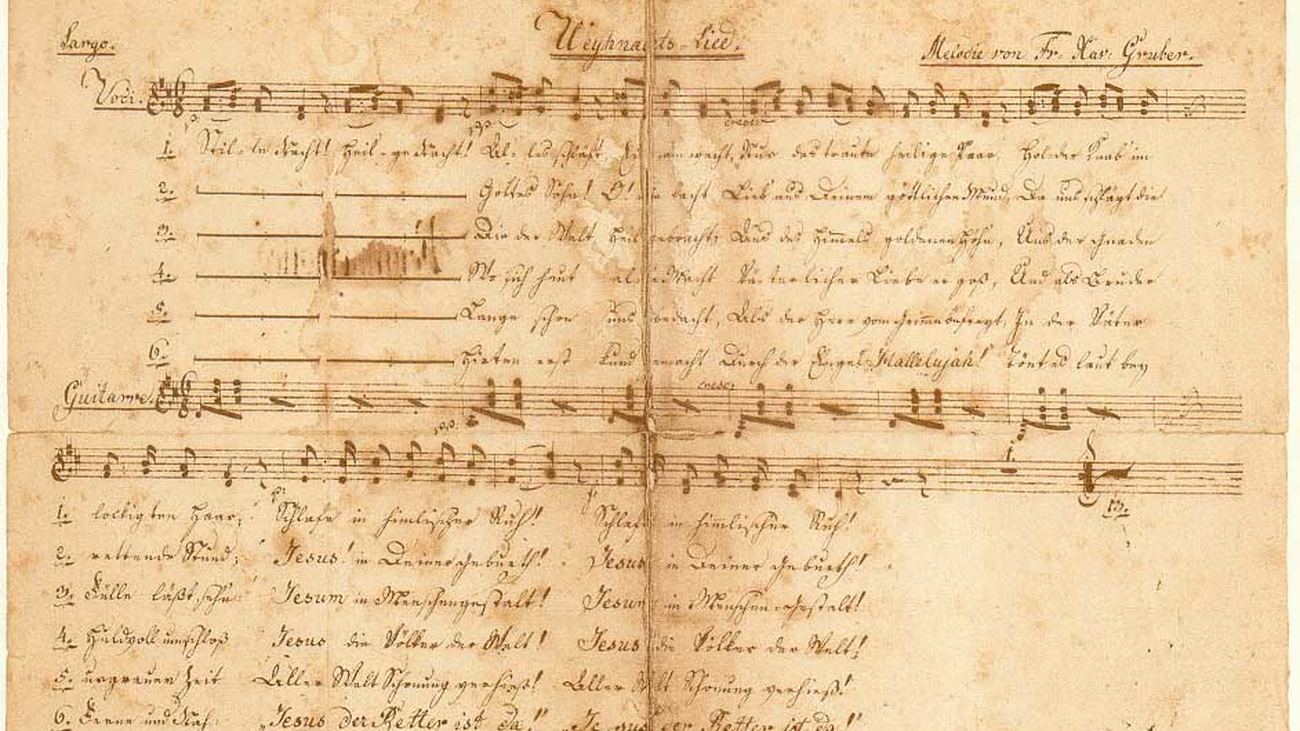 Largo.
Weyhnachts-Lied.
Melodie von Fr. Xav. Gruber.
Voci.
1. Stil-le Nacht! Heil-ge Nacht! Al-les schläft, Ein am wacht, Nur das traute heilige Paar, Holder Knab' im
2. Gottes Sohn! O! wie lacht Lieb aus Deinem göttlichen Mund, Da uns schlägt die
3. Die der Welt, Heil gebracht; Aus des Himmels goldenen Höhn, Aus der Gnaden
4. Wo sich heut alle Macht Väterlicher Liebe ergoß, Und als Bruder
5. Lange schon uns bedacht, Als der Herr vom Grimme befreyt, In der Väter
6. Hirten erst kund gemacht Durch der Engel Hallelujah! Tönt es laut bey
cresc:
Guitarre.
cresc:
1. lockigten Haar; Schlafe in himlischer Ruh! Schlafe in himlischer Ruh!
2. rettende Stund; Jesus! in Deiner Geburth! Jesus in Deiner Geburth!
3. Fülle läßt sehn Jesum in Menschengestalt! Jesum in Menschen-Gestalt!
4. Huldvoll umschloß Jesus die Völker der Welt! Jesus die Völker der Welt!
5. urgrauer Zeit Aller Welt Schonung verhieß! Aller Welt Schonung verhieß!
6. Ferne und Nah „Jesus der Retter ist da!" „Jesus der Retter ist da!"